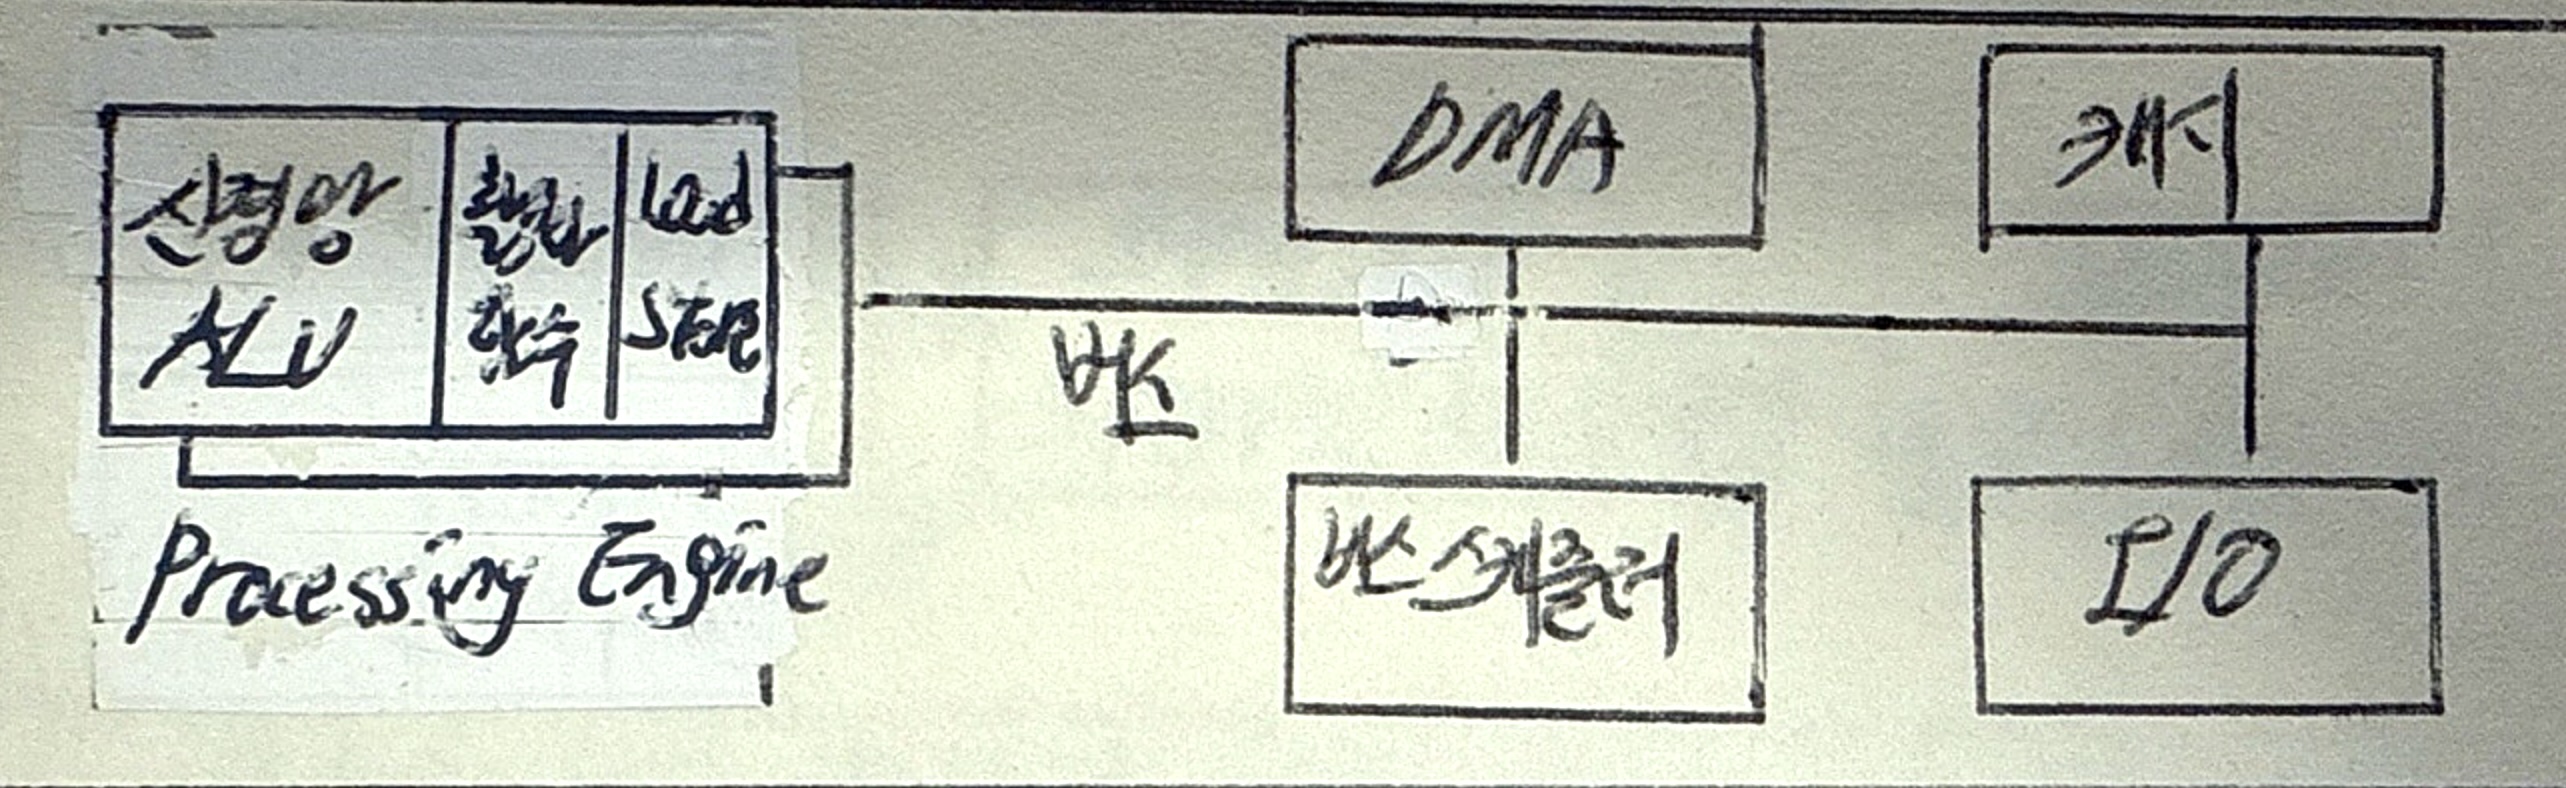 신경망
ALU
활성화
함수
Load
STORE
Processing Engine
버스
DMA
캐시
버스 스케줄러
I/O